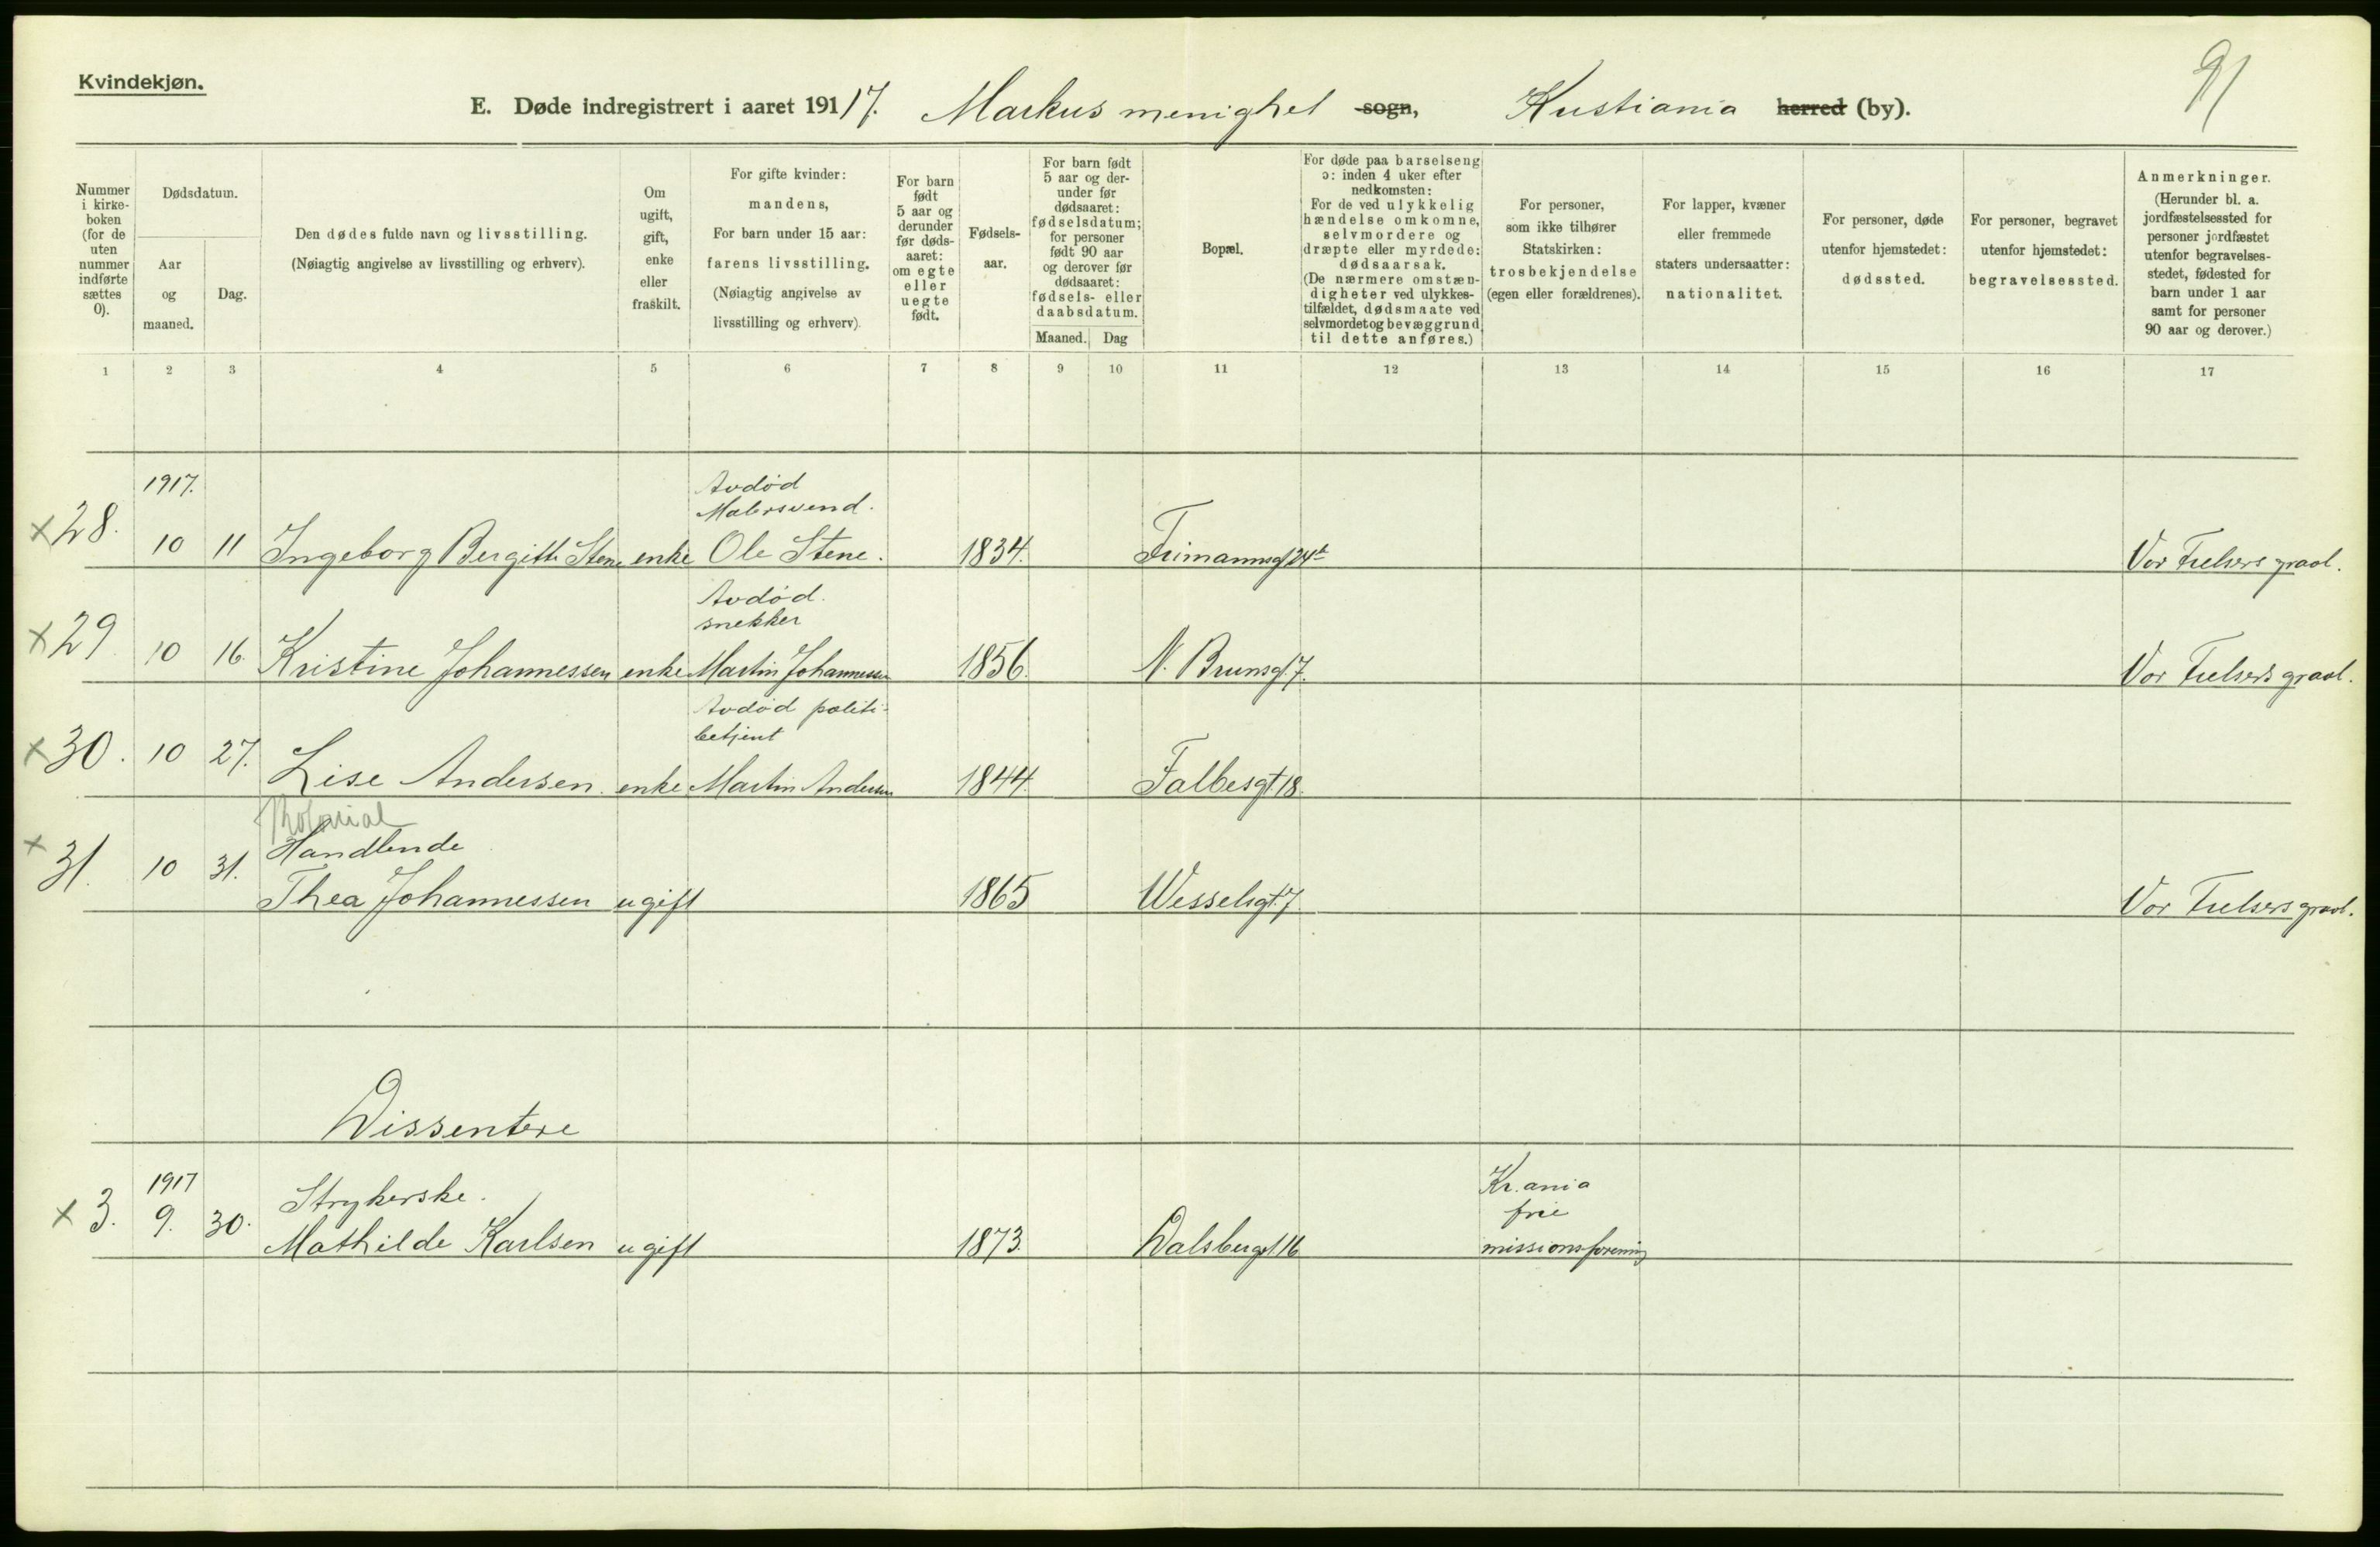 Kvindekjøn.
91
E. Døde indregistrert i aaret 191 17. Markus menighet sogn, Kristiania herred (by).
Nummer i kirke-boken (for de uten nummer indførte sættes 0).
Dødsdatum.
Aar og maaned.
Dag.
Den dødes fulde navn og livsstilling.
(Nøiagtig angivelse av livsstilling og erhverv).
Om ugift, gift, enke eller fraskilt.
For gifte kvinder: mandens,
For barn under 15 aar: farens livsstilling.
(Nøiagtig angivelse av livsstilling og erhverv).
For barn født 5 aar og derunder før døds-aaret: om egte eller uegte født.
Fødsels-aar.
For barn født 5 aar og der-under før dødsaaret: fødselsdatum; for personer født 90 aar og derover før dødsaaret: fødsels- eller daabsdatum.
Maaned. Dag
Bopæl.
For døde paa barselseng ɔ: inden 4 uker efter nedkomsten:
For de ved ulykkelig hændelse omkomne, selvmordere og dræpte eller myrdede: dødsaarsak.
(De nærmere omstæn-digheter ved ulykkes-tilfældet, dødsmaate ved selvmordet og bevæggrund til dette anføres.)
For personer, som ikke tilhører Statskirken: trosbekjendelse (egen eller forældrenes).
For lapper, kvæner eller fremmede staters undersaatter: nationalitet.
For personer, døde utenfor hjemstedet: dødssted.
For personer, begravet utenfor hjemstedet: begravelsessted.
Anmerkninger.
(Herunder bl. a. jordfæstelsessted for personer jordfæstet utenfor begravelses-stedet, fødested for barn under 1 aar samt for personer 90 aar og derover.)
1 2 3 4 5 6 7 8 9 10 11 12 13 14 15 16 17
1917. Avdød
Malersvend.
x 28. 10 11 Ingeborg Bergitte Stene enke Ole Stene. 1834. Frimannsgt 24b Vor Frelsers gravl.
Avdød.
snekker
x 29 10 16. Kristine Johannessen enke Martin Johannessen 1856. N. Brunsgt. 7. Vor Frelsers gravl.
Avdød politi-
betjent
x 30. 10 27. Lise Andersen. enke Martin Andersen 1844. Falbesgt. 18.
Kolonial
Handlende
x 31. 10 31. Thea Johannessen ugift 1865 Wesselsgt. 7 Vor Frelsers gravl.
Dissentere
1917 Strykerske. Kr.ania
frie
x 3. 9. 30. Mathilde Karlsen ugift 1873. Dalsbergst 16 missionsforening